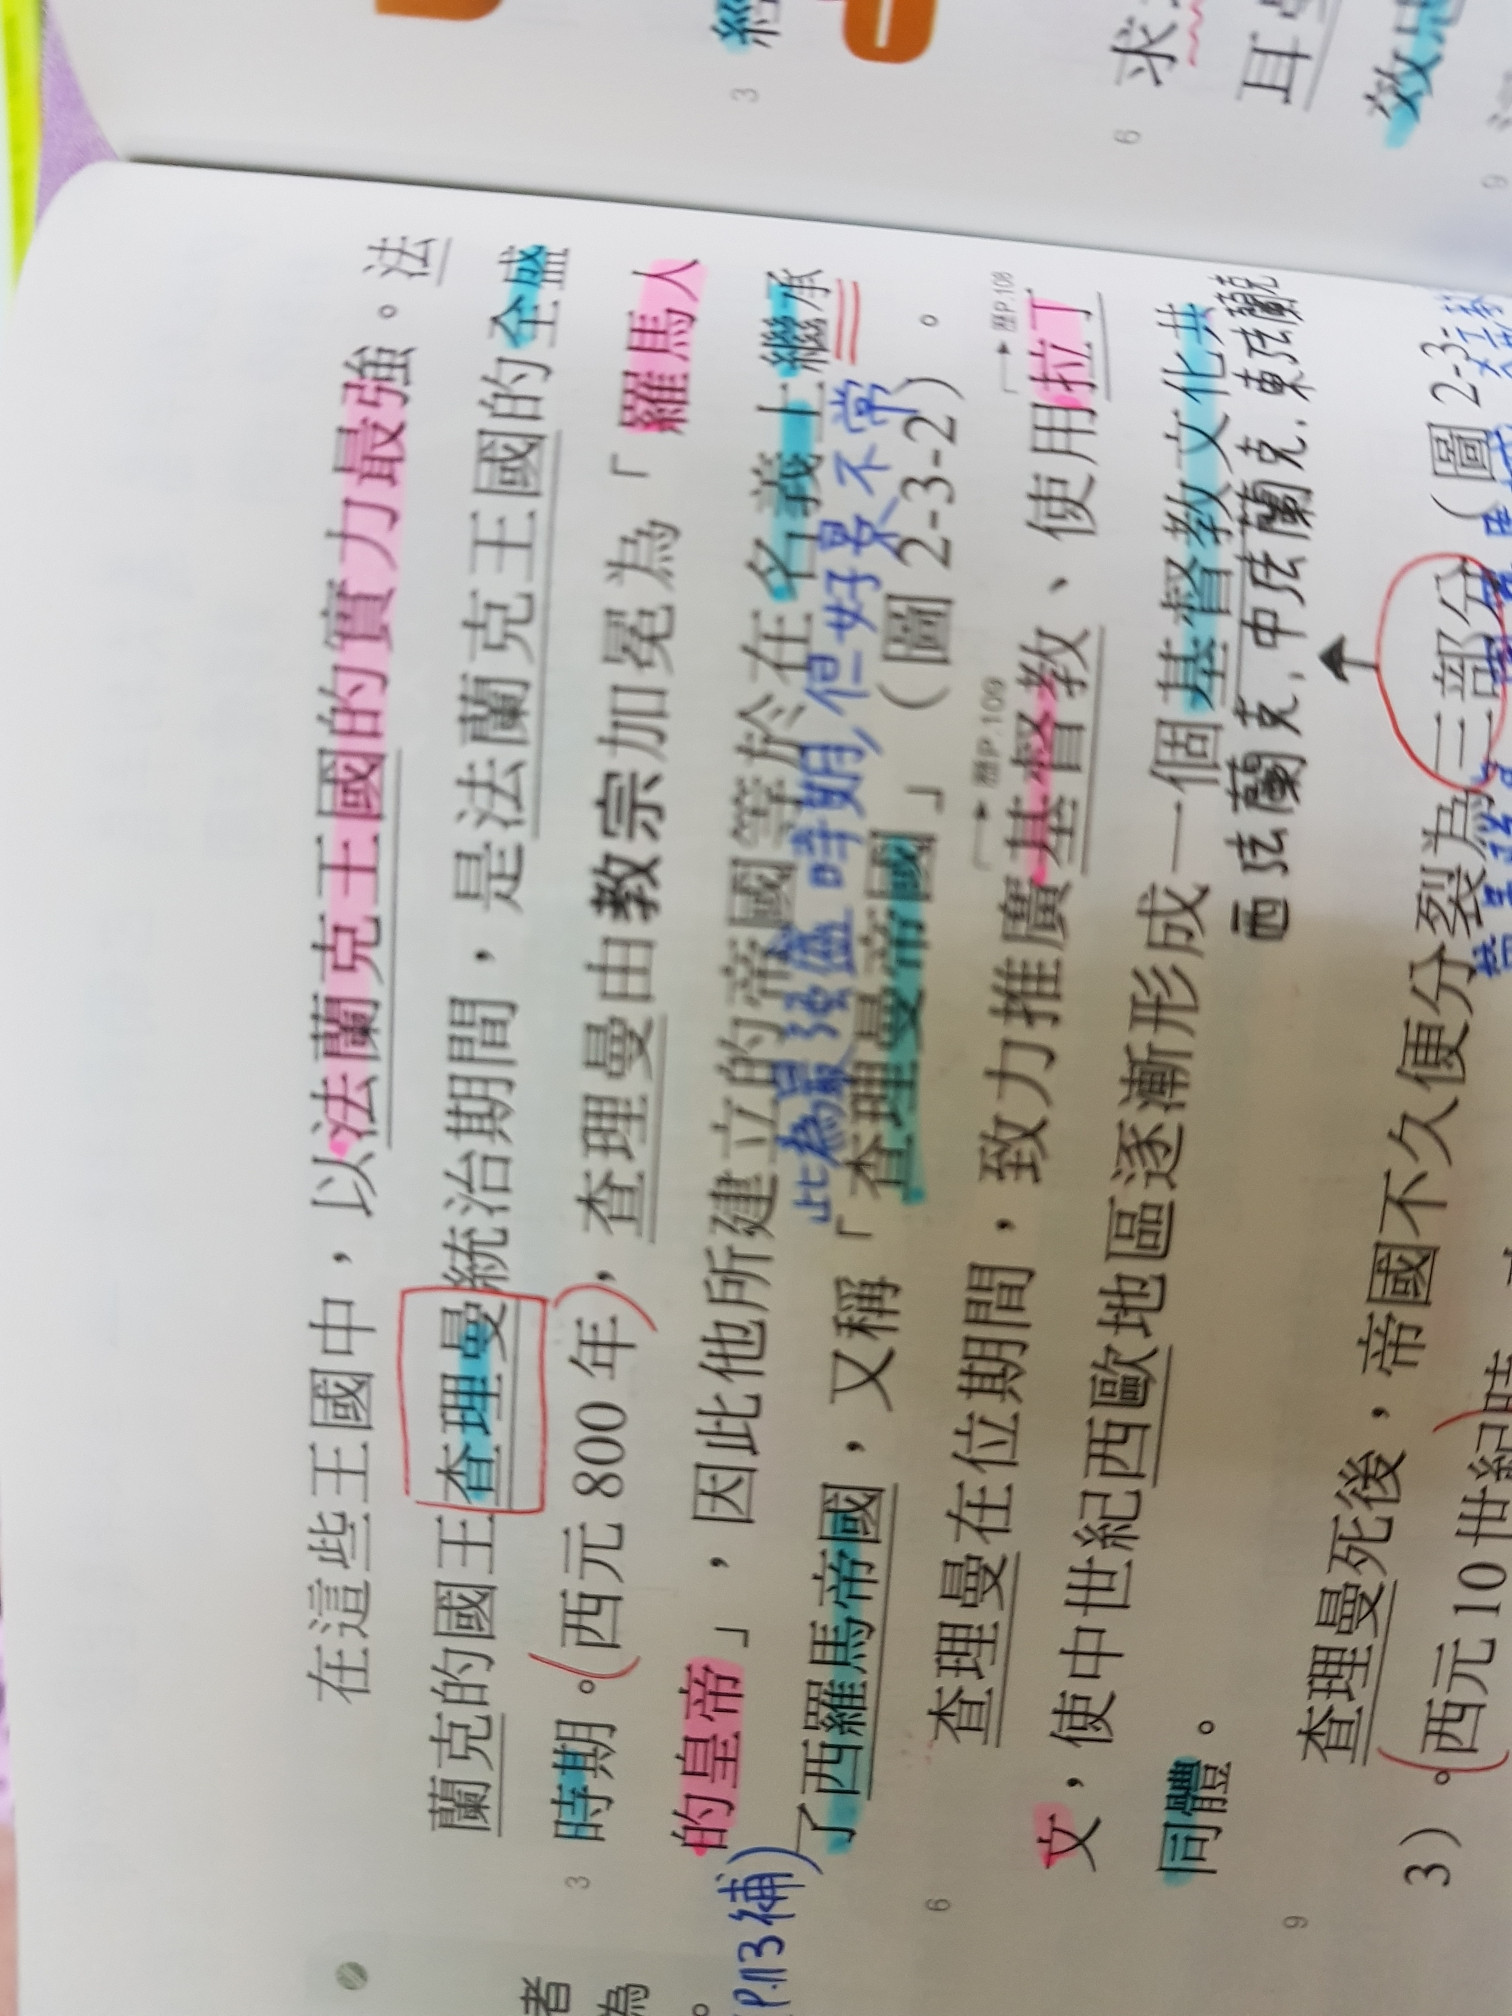 在這些王國中，以法蘭克王國的實力最強。法
蘭克的國王查理曼統治期間，是法蘭克王國的全盛
3
時期。(西元 800 年)，查理曼由教宗加冕為「羅馬人
的皇帝」，因此他所建立的帝國等於在名義上繼承
(P.113補)
此為最強盛時期，但好景不常
了西羅馬帝國，又稱「查理曼帝國」（圖 2-3-2）。
6
→歷P.109
→歷P.108
查理曼在位期間，致力推廣基督教、使用拉丁
文，使中世紀西歐地區逐漸形成一個基督教文化共
同體。
西法蘭克,中法蘭克,東法蘭克
9
查理曼死後，帝國不久便分裂為三部分（圖 2-3-
3）。(西元 10 世紀時
者
為
3
6
求
耳
9